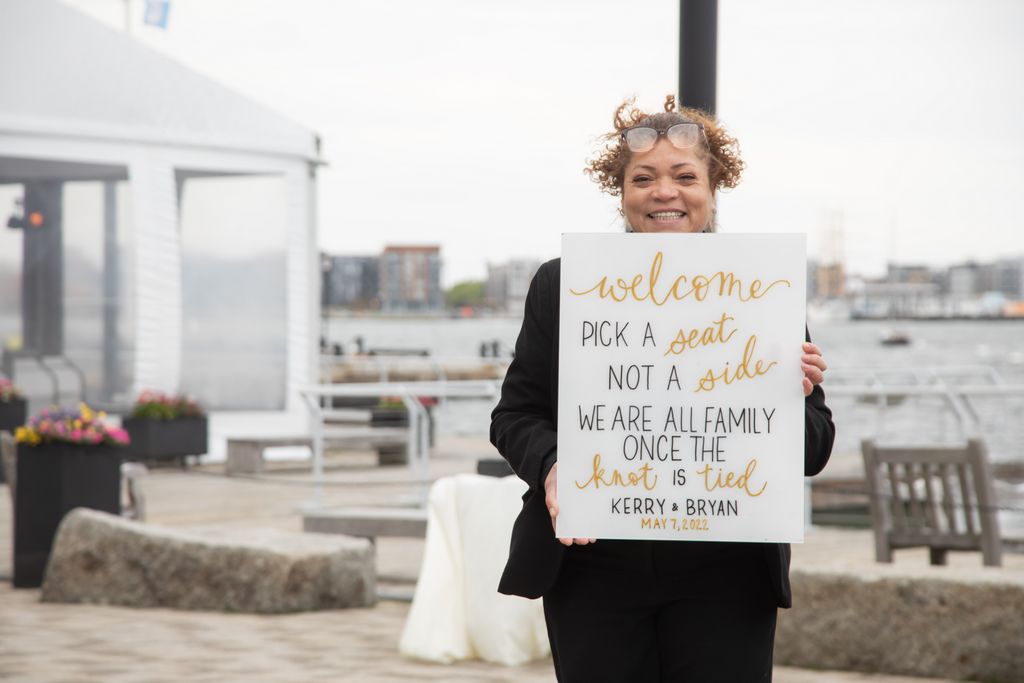 welcome
PICK A seat
NOT A side
WE ARE ALL FAMILY
ONCE THE
knot IS tied
KERRY & BRYAN
MAY 7, 2022